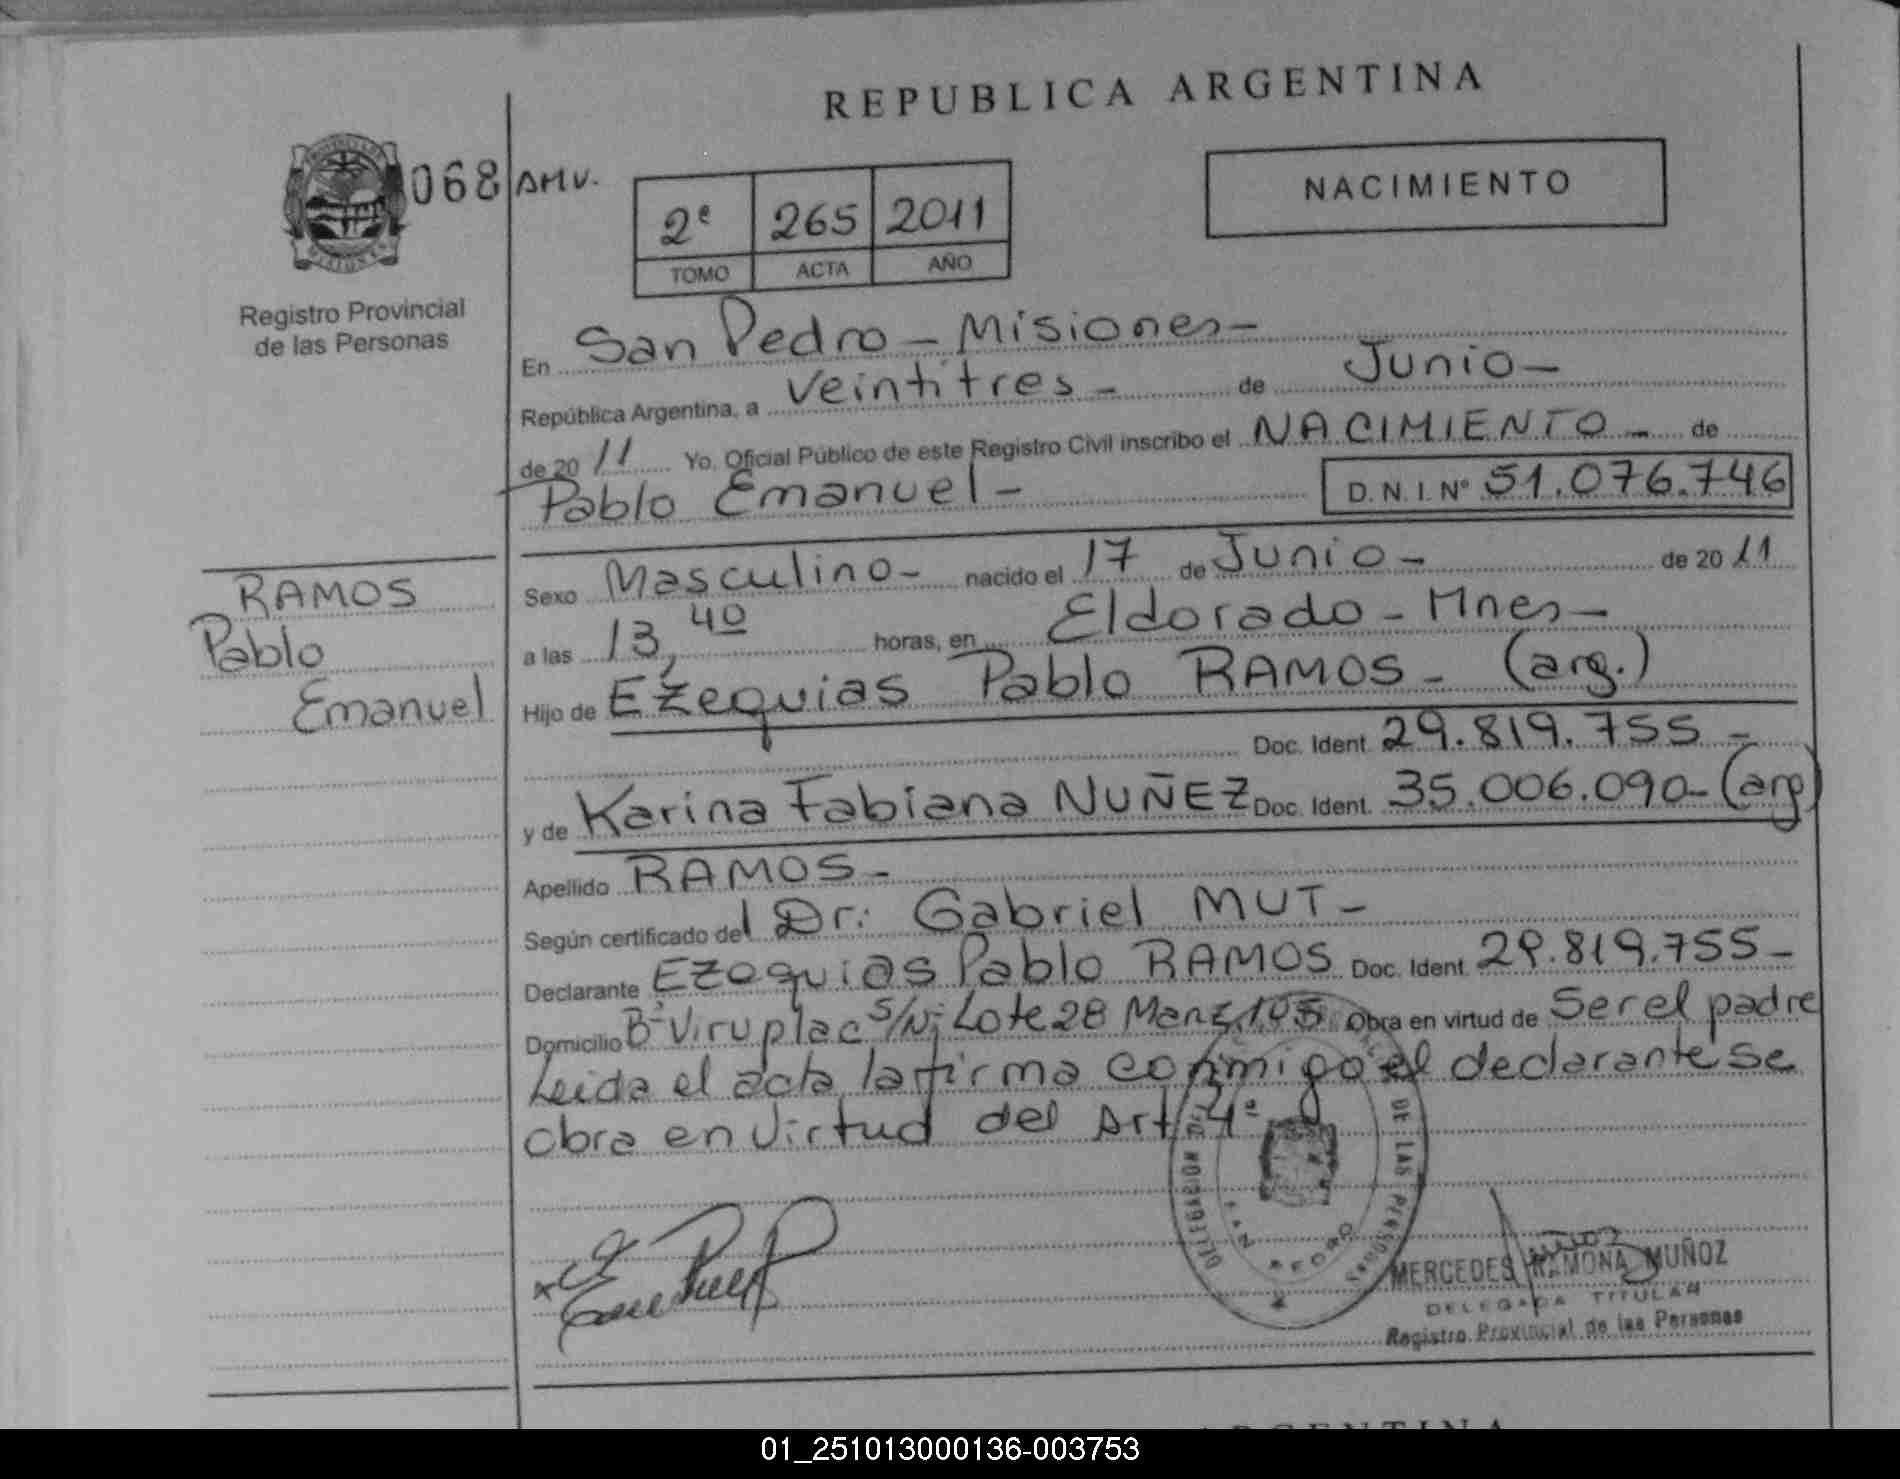 REPUBLICA ARGENTINA
068 AMV.
2º 265 2011
TOMO ACTA AÑO
NACIMIENTO
Registro Provincial
de las Personas
En San Pedro - Misiones -
República Argentina, a veintitres - de Junio -
de 2011 Yo, Oficial Público de este Registro Civil inscribo el NACIMIENTO - de
Pablo Emanuel - D.N.I. Nº 51.076.746
RAMOS
Pablo
Emanuel
Sexo Masculino - nacido el 17 de Junio - de 2011
a las 13,40 horas, en Eldorado - Mnes -
Hijo de Ezequias Pablo RAMOS - (arg.)
Doc. Ident. 29.819.755 -
y de Karina Fabiana NUÑEZ Doc. Ident. 35.006.090 - (arg)
Apellido RAMOS -
Según certificado del Dr: Gabriel MUT -
Declarante Ezequias Pablo RAMOS Doc. Ident. 29.819.755 -
Domicilio Bº Viruplac S/N; Lote 28 Manz. 105 Obra en virtud de Ser el padre
Leida el acta la firma conmigo el declarante se
obra en virtud del Art. 4º
DELEGACION DE LAS PERSONAS
SAN PEDRO
MERCEDES RAMONA MUÑOZ
DELEGADA TITULAR
Registro Provincial de las Personas
ARGENTINA
01_251013000136-003753